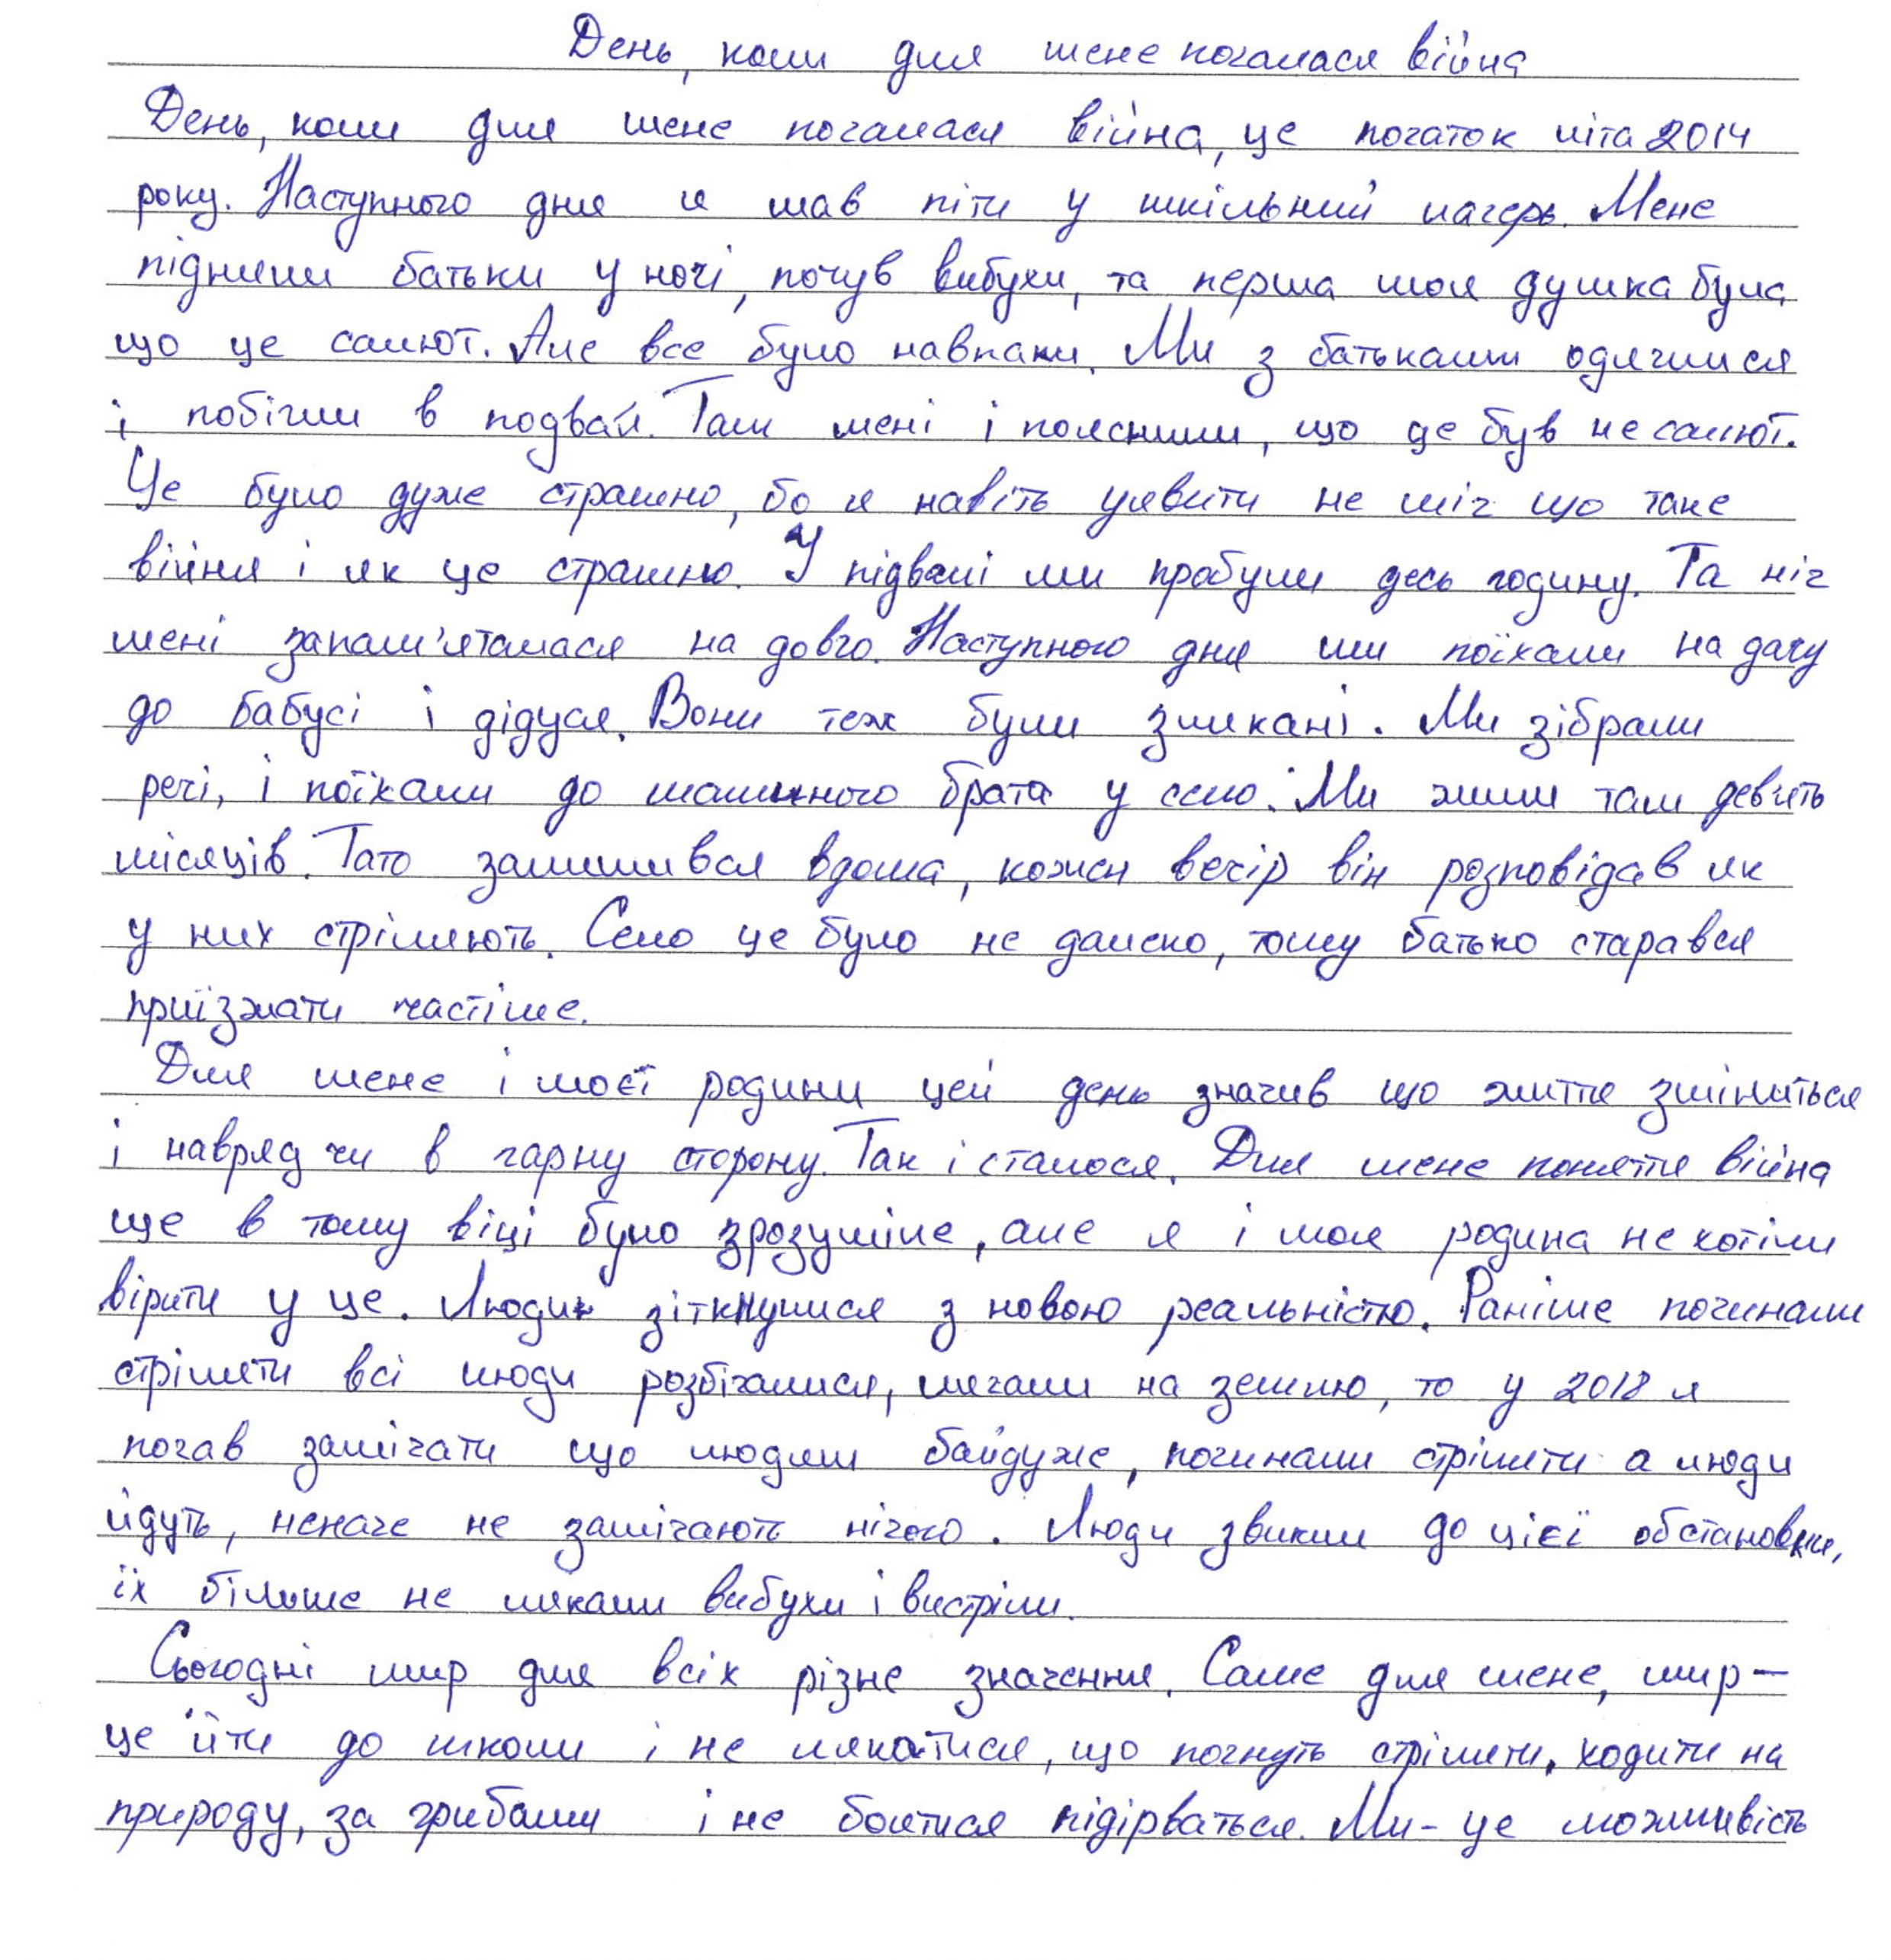 День, коли для мене почалася війна
День, коли для мене почалася війна, це початок літа 2014
року. Наступного дня я мав піти у шкільний лагерь. Мене
підняли батьки у ночі, почув вибухи, та перша моя думка була
що це салют. Але все було навпаки. Ми з батьками одяглися
і побігли в подвал. Там мені і пояснили, що це був не салют.
Це було дуже страшно, бо я навіть уявити не міг що таке
війня і як це страшно. У підвалі ми пробули десь годину. Та ніч
мені запам'яталася на довго. Наступного дня ми поїхали на дачу
до бабусі і дідуся. Вони теж були злякані. Ми зібрали
речі, і поїхали до мамин­ого брата у село. Ми жили там девять
місяців. Тато залишився вдома, кожен вечір він розповідав як
у них стріляють. Село це було не далеко, тому батько старався
приїзжати частіше.
Для мене і моєї родини цей день значив що життя зміниться
і навряд чи в гарну сторону. Так і сталося. Для мене поняття війна
ще в тому віці було зрозуміле, але я і моя родина не хотіли
вірити у це. Люди зіткнулися з новою реальністю. Раніше починали
стріляти всі люди розбігалися, лягали на землю, то у 2018 я
почав замічати що людям байдуже, починали стріляти а люди
йдуть, неначе не замічають нічого. Люди звикли до цієї обстановки,
їх більше не лякали вибухи і вистріли.
Сьогодні мир для всіх різне значення. Саме для мене, мир -
це йти до школи і не лякатися, що почнуть стріляти, ходити на
природу, за грибами і не боятися підірваться. Ми - це можливість